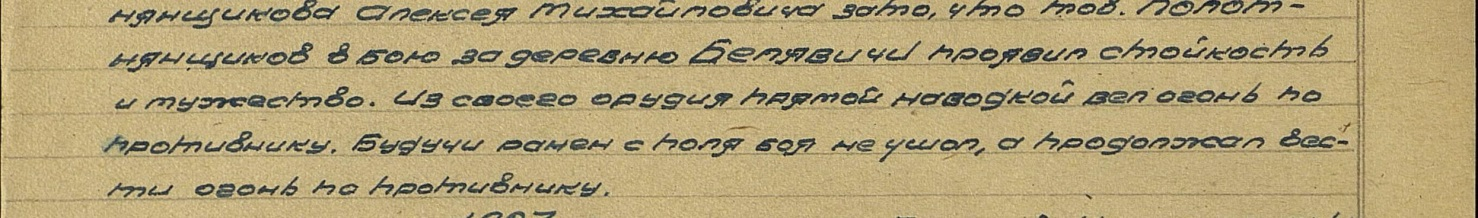 нянщикова Алексея Михайловича зато, что тов. Полот-
нянщиков в бою за деревню Белявичи проявил стойкость
и мужество. Из своего орудия прямой наводкой вел огонь по
противнику. Будучи ранен с поля боя не ушол, а продолжал вес-
ти огонь по противнику.